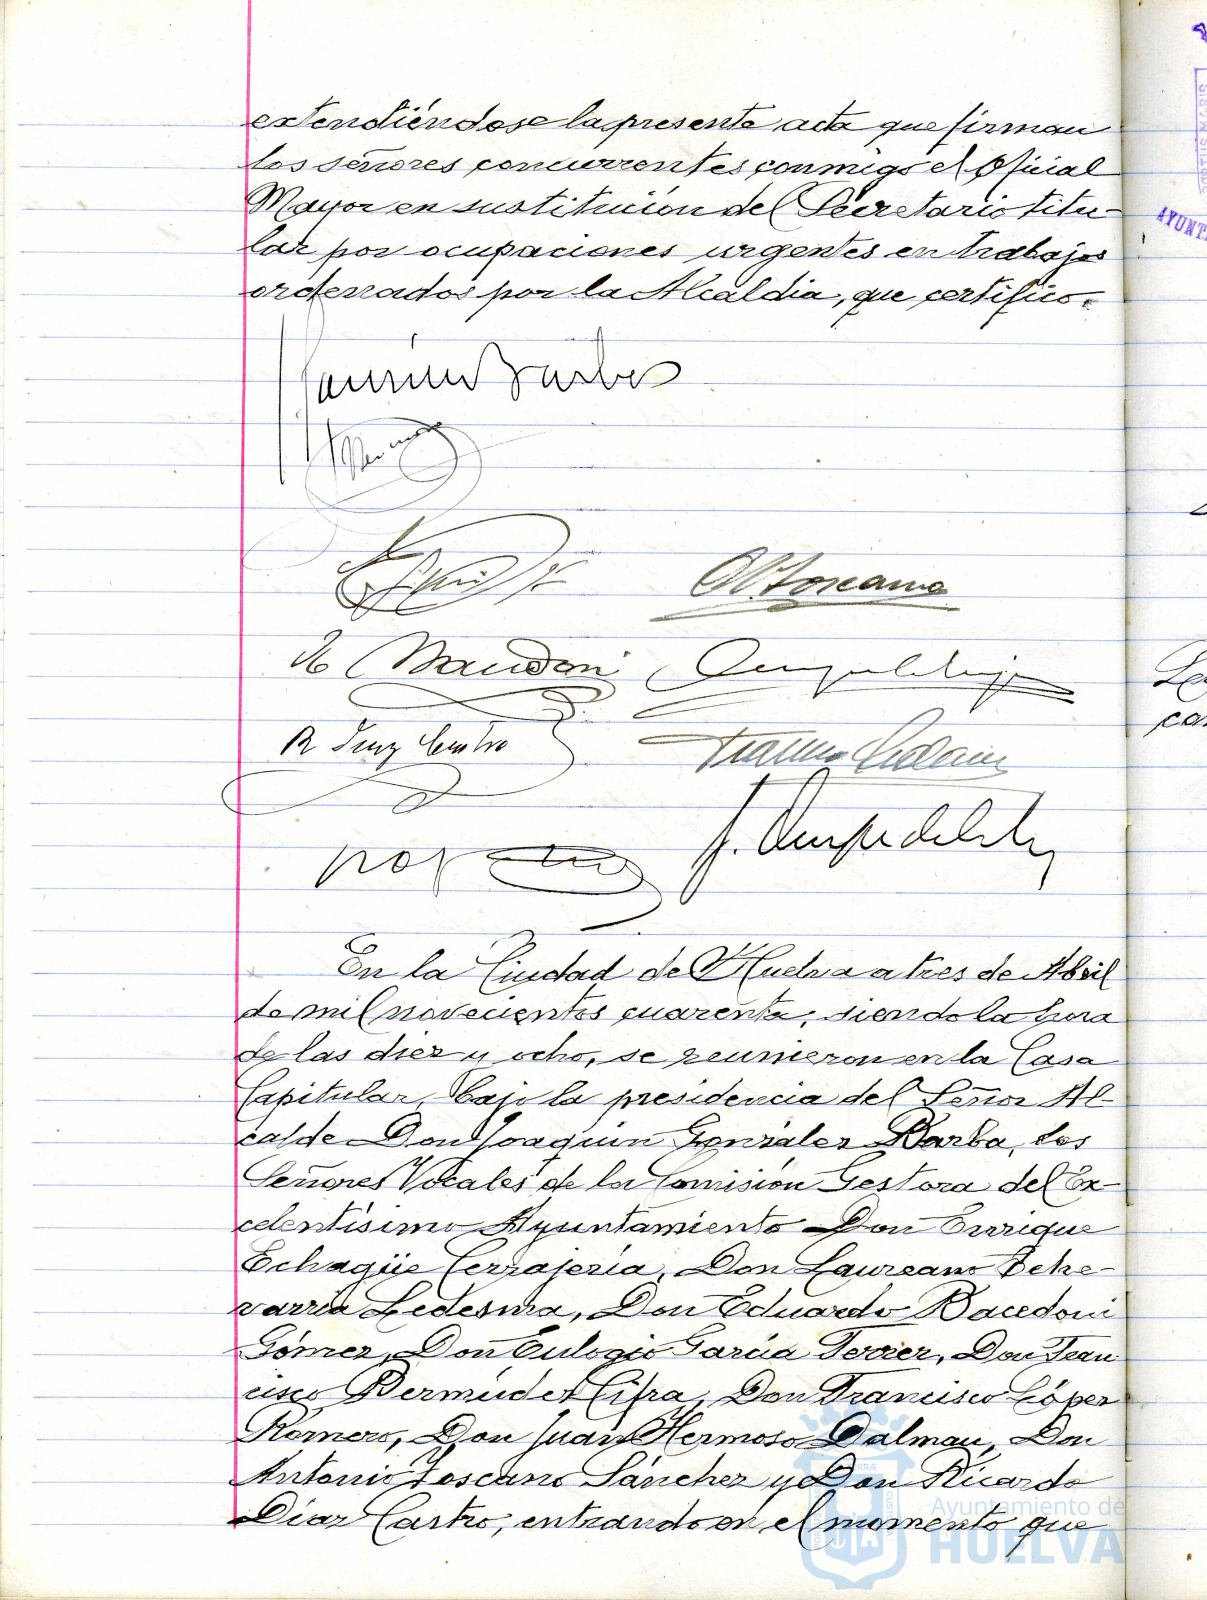 extendiéndose la presente acta que firman
los señores concurrentes conmigo el Oficial
Mayor en sustitución del Secretario titu-
lar por ocupaciones urgentes en trabajos
ordenados por la Alcaldia, que certifico.
Joaquin G Barba
A Toscano
E Bacedoni
R Diaz Castro
En la Ciudad de Huelva a tres de Abril
de mil novecientos cuarenta, siendo la hora
de las diez y ocho, se reunieron en la Casa
Capitular, bajo la presidencia del Señor Al-
calde Don Joaquin González Barba, los
Señores Vocales de la Comisión Gestora del Ex-
celentísimo Ayuntamiento Don Enrique
Echagüe Cerrajería, Don Laureano Eche-
varria Ledesma, Don Eduardo Bacedoni
Gómez, Don Eulogio García Terrer, Don Fran
cisco Bermúdez Cifra, Don Francisco López
Romero, Don Juan Hermoso Dalmau, Don
Antonio Toscano Sánchez y Don Ricardo
Díaz Castro, entrando en el momento que
Ayuntamiento de
HUELVA